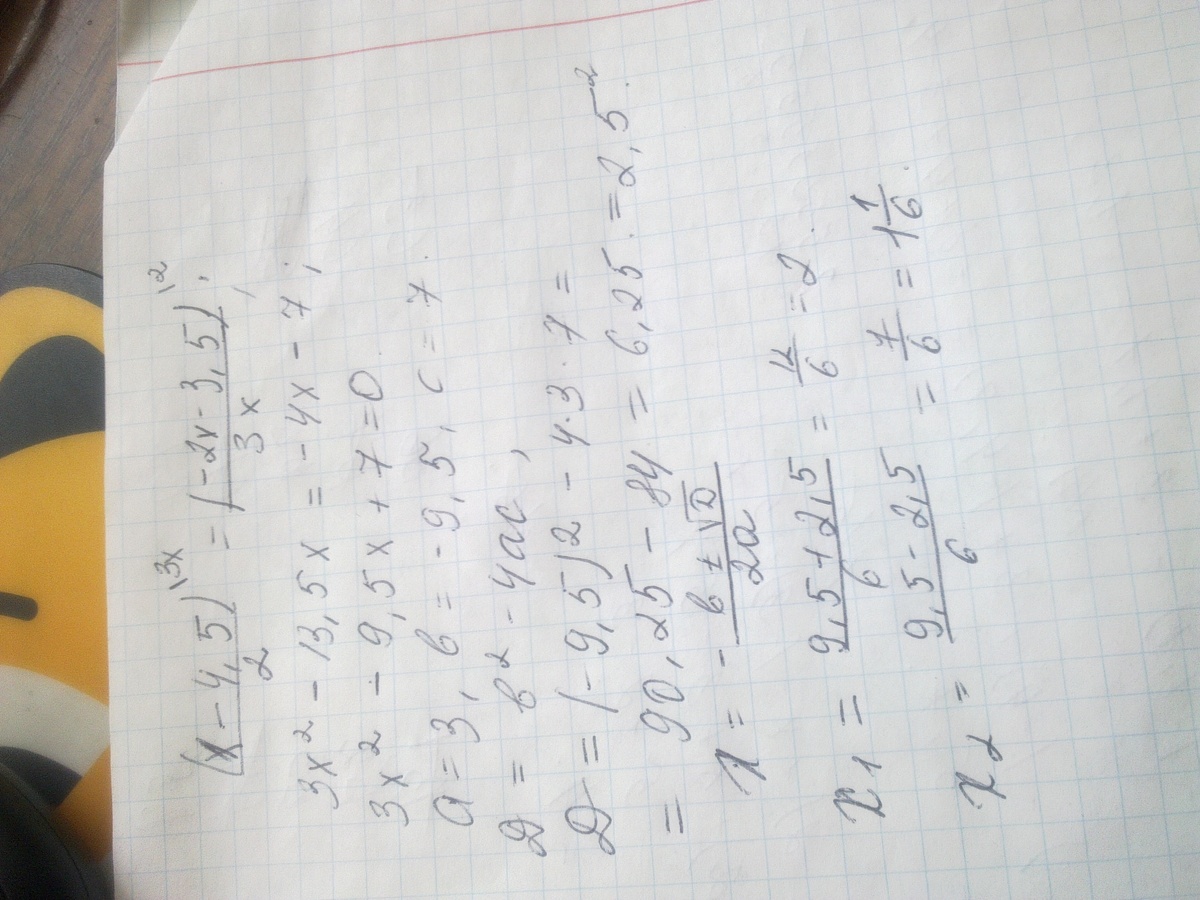 (x - 4,5)\3x / 2 = (-2x - 3,5)\2 / 3x ;
3x² - 13,5x = -4x - 7 ;
3x² - 9,5x + 7 = 0.
a = 3, b = -9,5, c = 7.
D = b² - 4ac,
D = (-9,5)2 - 4·3·7 =
= 90,25 - 84 = 6,25. = 2,5².
x = - b ± √D / 2a
x1 = 9,5 + 2,5 / 6 = 12/6 = 2.
x2 = 9,5 - 2,5 / 6 = 7/6 = 1 1/6.